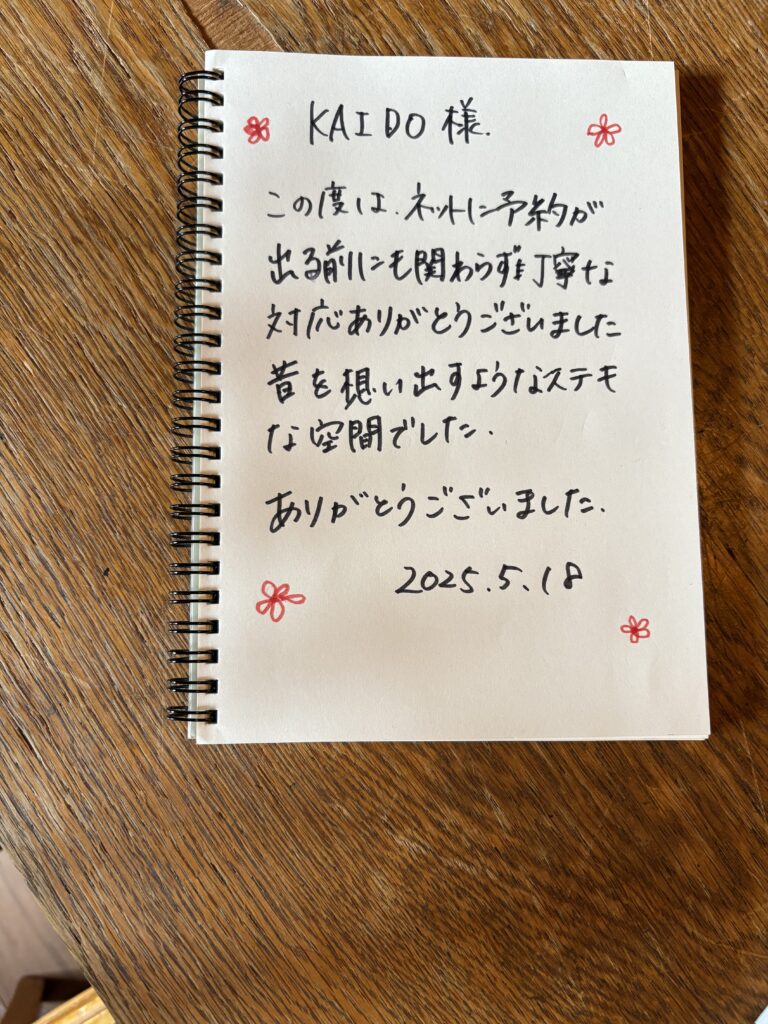 KAIDO 様.
この度は、ネットに予約が
出る前にも関わらず丁寧な
対応ありがとうございました
昔を想い出すようなステキ
な空間でした.
ありがとうございました.
2025.5.18